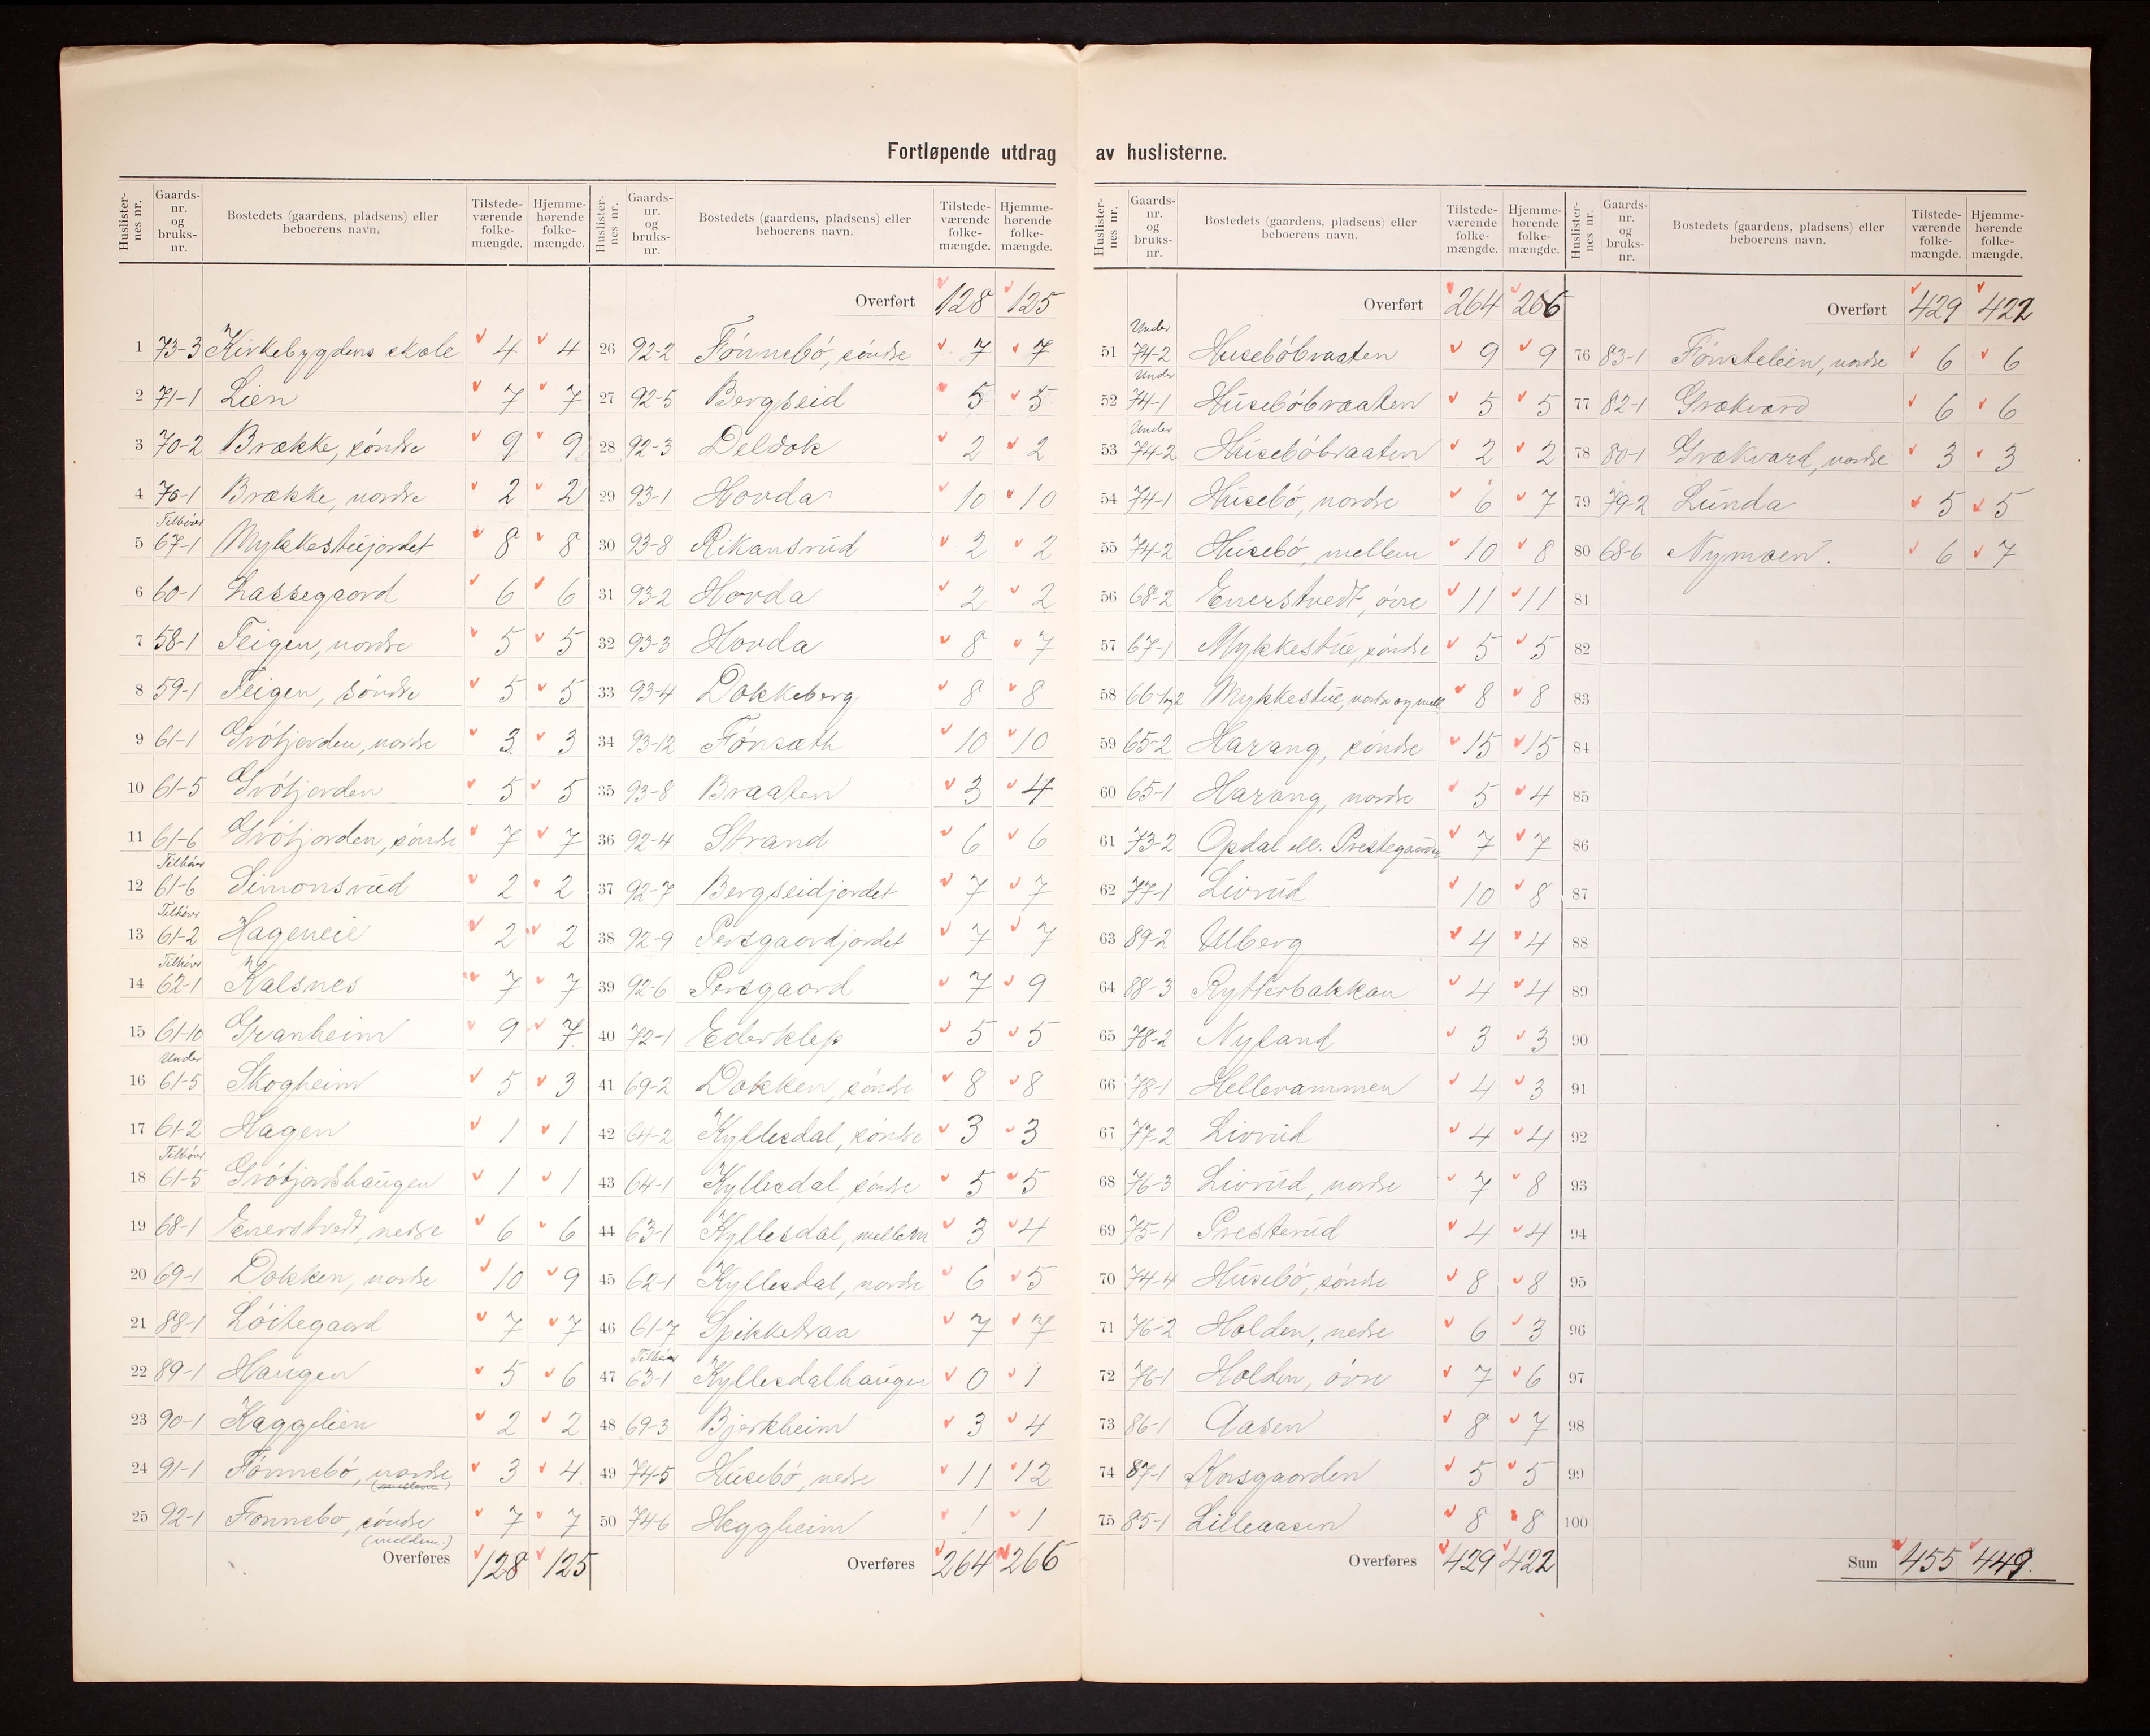 Fortløpende utdrag av huslisterne.
Huslisternes nr. Gaardsnr. og bruksnr. Bostedets (gaardens, pladsens) eller beboerens navn. Tilstedeværende folkemængde. Hjemmehørende folkemængde.
1 73-3 Kirkebygdens skole 4 4
2 71-1 Lien 7 7
3 70-2 Brække, söndre 9 9
4 70-1 Brække, nordre 2 2
5 Tilhörer 67-1 Mykkestuejordet 8 8
6 60-1 Lassegaard 6 6
7 58-1 Teigen, nordre 5 5
8 59-1 Teigen, söndre 5 5
9 61-1 Grötjorden, nordre 3 3
10 61-5 Grötjorden 5 5
11 61-6 Grötjorden, söndre 7 7
12 Tilhörer 61-6 Simonsrud 2 2
13 Tilhörer 61-2 Hageneie 2 2
14 Tilhörer 62-1 Kalsnes 7 7
15 61-10 Granheim 9 7
16 Under 61-5 Skogheim 5 3
17 61-2 Hagen 1 1
18 Tilhörer 61-5 Grötjordshaugen 1 1
19 68-1 Enerstvedt, nedre 6 6
20 69-1 Dokken, nordre 10 9
21 88-1 Löitegaard 7 7
22 89-1 Haugen 5 6
23 90-1 Kaggelien 2 2
24 91-1 Fönnebö, nordre 3 4
25 92-1 Fönnebö, söndre (mellem.) 7 7
Overføres 128 125
Huslisternes nr. Gaardsnr. og bruksnr. Bostedets (gaardens, pladsens) eller beboerens navn. Tilstedeværende folkemængde. Hjemmehørende folkemængde.
Overført 128 125
26 92-2 Fönnebö, söndre 7 7
27 92-5 Bergseid 5 5
28 92-3 Deldok 2 2
29 93-1 Hovda 10 10
30 93-8 Rikansrud 2 2
31 93-2 Hovda 2 2
32 93-3 Hovda 8 7
33 93-4 Dokkeberg 8 8
34 93-12 Fönsæth 10 10
35 93-8 Braaten 3 4
36 92-4 Strand 6 6
37 92-7 Bergseidjordet 7 7
38 92-9 Persgaardjordet 7 7
39 92-6 Persgaard 7 9
40 72-1 Ederklep 5 5
41 69-2 Dokken, söndre 8 8
42 64-2 Kyllesdal, söndre 3 3
43 64-1 Kyllesdal, söndre 5 5
44 63-1 Kyllesdal, mellem 3 4
45 62-1 Kyllesdal, nordre 6 5
46 61-7 Spikketraa 7 7
47 Tilhörer 63-1 Kyllesdalhaugen 0 1
48 69-3 Bjerkheim 3 4
49 74-5 Husebö, nedre 11 12
50 74-6 Heggheim 1 1
Overføres 264 266
Huslisternes nr. Gaardsnr. og bruksnr. Bostedets (gaardens, pladsens) eller beboerens navn. Tilstedeværende folkemængde. Hjemmehørende folkemængde.
Overført 264 266
51 Under 74-2 Huseböbraaten 9 9
52 Under 74-1 Huseböbraaten 5 5
53 Under 74-2 Huseböbraaten 2 2
54 74-1 Husebö, nordre 6 7
55 74-2 Husebö, mellem 10 8
56 68-2 Enerstvedt, övre 11 11
57 67-1 Mykkestue, söndre 5 5
58 66-1og2 Mykkestue, nordre og mell. 8 8
59 65-2 Harang, söndre 15 15
60 65-1 Harang, nordre 5 4
61 73-2 Opdal ell. Prestegaarden 7 7
62 77-1 Livrud 10 8
63 89-2 Ulberg 4 4
64 88-3 Rytterbakkan 4 4
65 78-2 Nyland 3 3
66 78-1 Hellerammen 4 3
67 77-2 Livrud 4 4
68 76-3 Livrud, nordre 7 8
69 75-1 Presterud 4 4
70 74-4 Husebö, söndre 8 8
71 76-2 Holden, nedre 6 3
72 76-1 Holden, övre 7 6
73 86-1 Aasen 8 7
74 87-1 Korsgaarden 5 5
75 85-1 Lilleaasen 8 8
Overføres 429 422
Huslisternes nr. Gaardsnr. og bruksnr. Bostedets (gaardens, pladsens) eller beboerens navn. Tilstedeværende folkemængde. Hjemmehørende folkemængde.
Overført 429 422
76 83-1 Fönstelien, nordre 6 6
77 82-1 Grækvard 6 6
78 80-1 Grækvard, nordre 3 3
79 79-2 Lunda 5 5
80 68-6 Nymoen. 6 7
81
82
83
84
85
86
87
88
89
90
91
92
93
94
95
96
97
98
99
100
Sum 455 449.